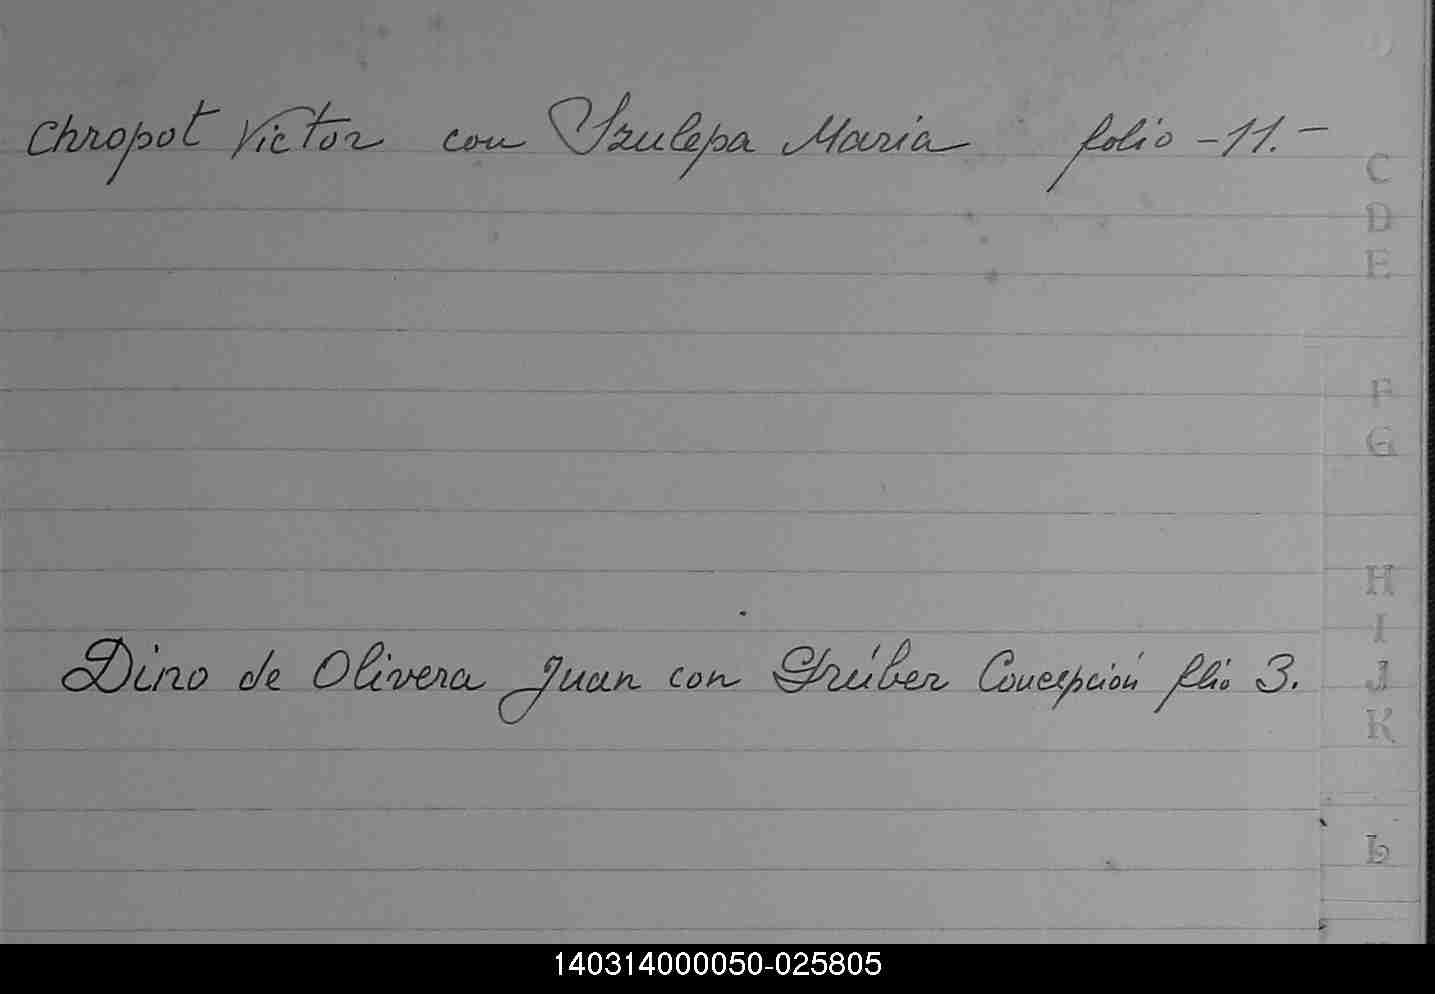 Chropot Victor con Szulepa Maria folio - 11. -
C
D
E
F
G
H
I
Dino de Olivera Juan con Grúber Concepción folio 3.
J
K
L
140314000050-025805